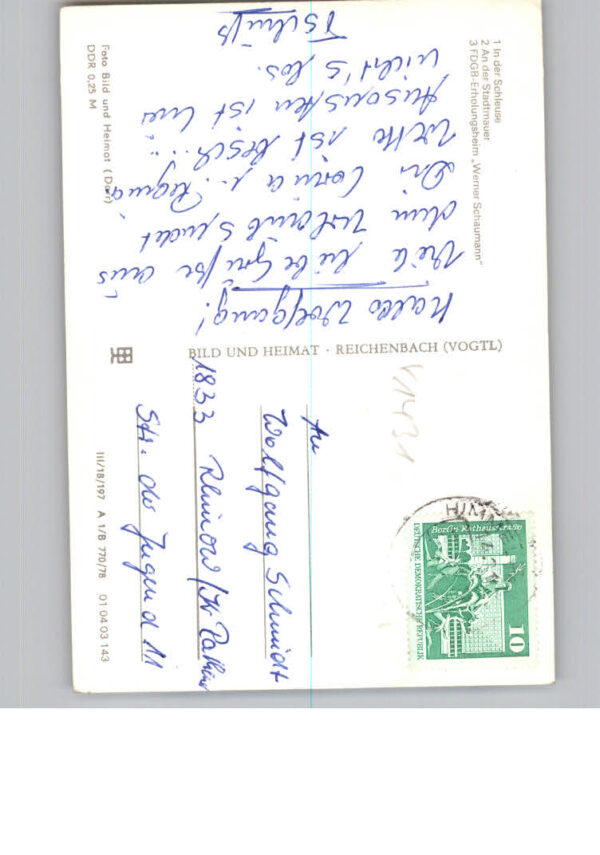 1 In der Schleuse
2 An der Stadtmauer
3 FDGB-Erholungsheim „Werner Schaumann“
Hallo Wolfgang!
Viele liebe Grüße aus
dem Urlaub sendet
Dir Corina u. Regina
ist
Ansonsten ist hier
nicht's los.
Tschüß
Foto Bild und Heimat (Dorr)
DDR 0,25 M
BILD UND HEIMAT · REICHENBACH (VOGTL)
An
Wolfgang Schmidt
1833 Rhinow/Kr
Str. der Jugend 11
III/18/197 A 1/B 770/78 01 04 03 143
Berlin, Rathausstraße
DEUTSCHE DEMOKRATISCHE REPUBLIK
10